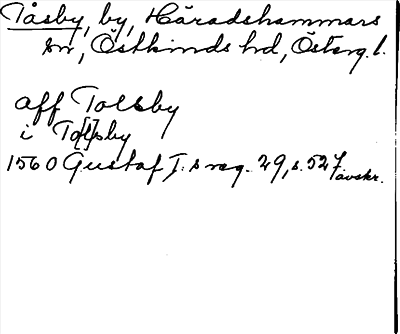 Tåsby, by, Häradshammars
sn, Östkinds hd, Österg. l.
aff Tolsby
i To[l]sby
1560 Gustaf I:s reg. 29, s. 527
avskr.